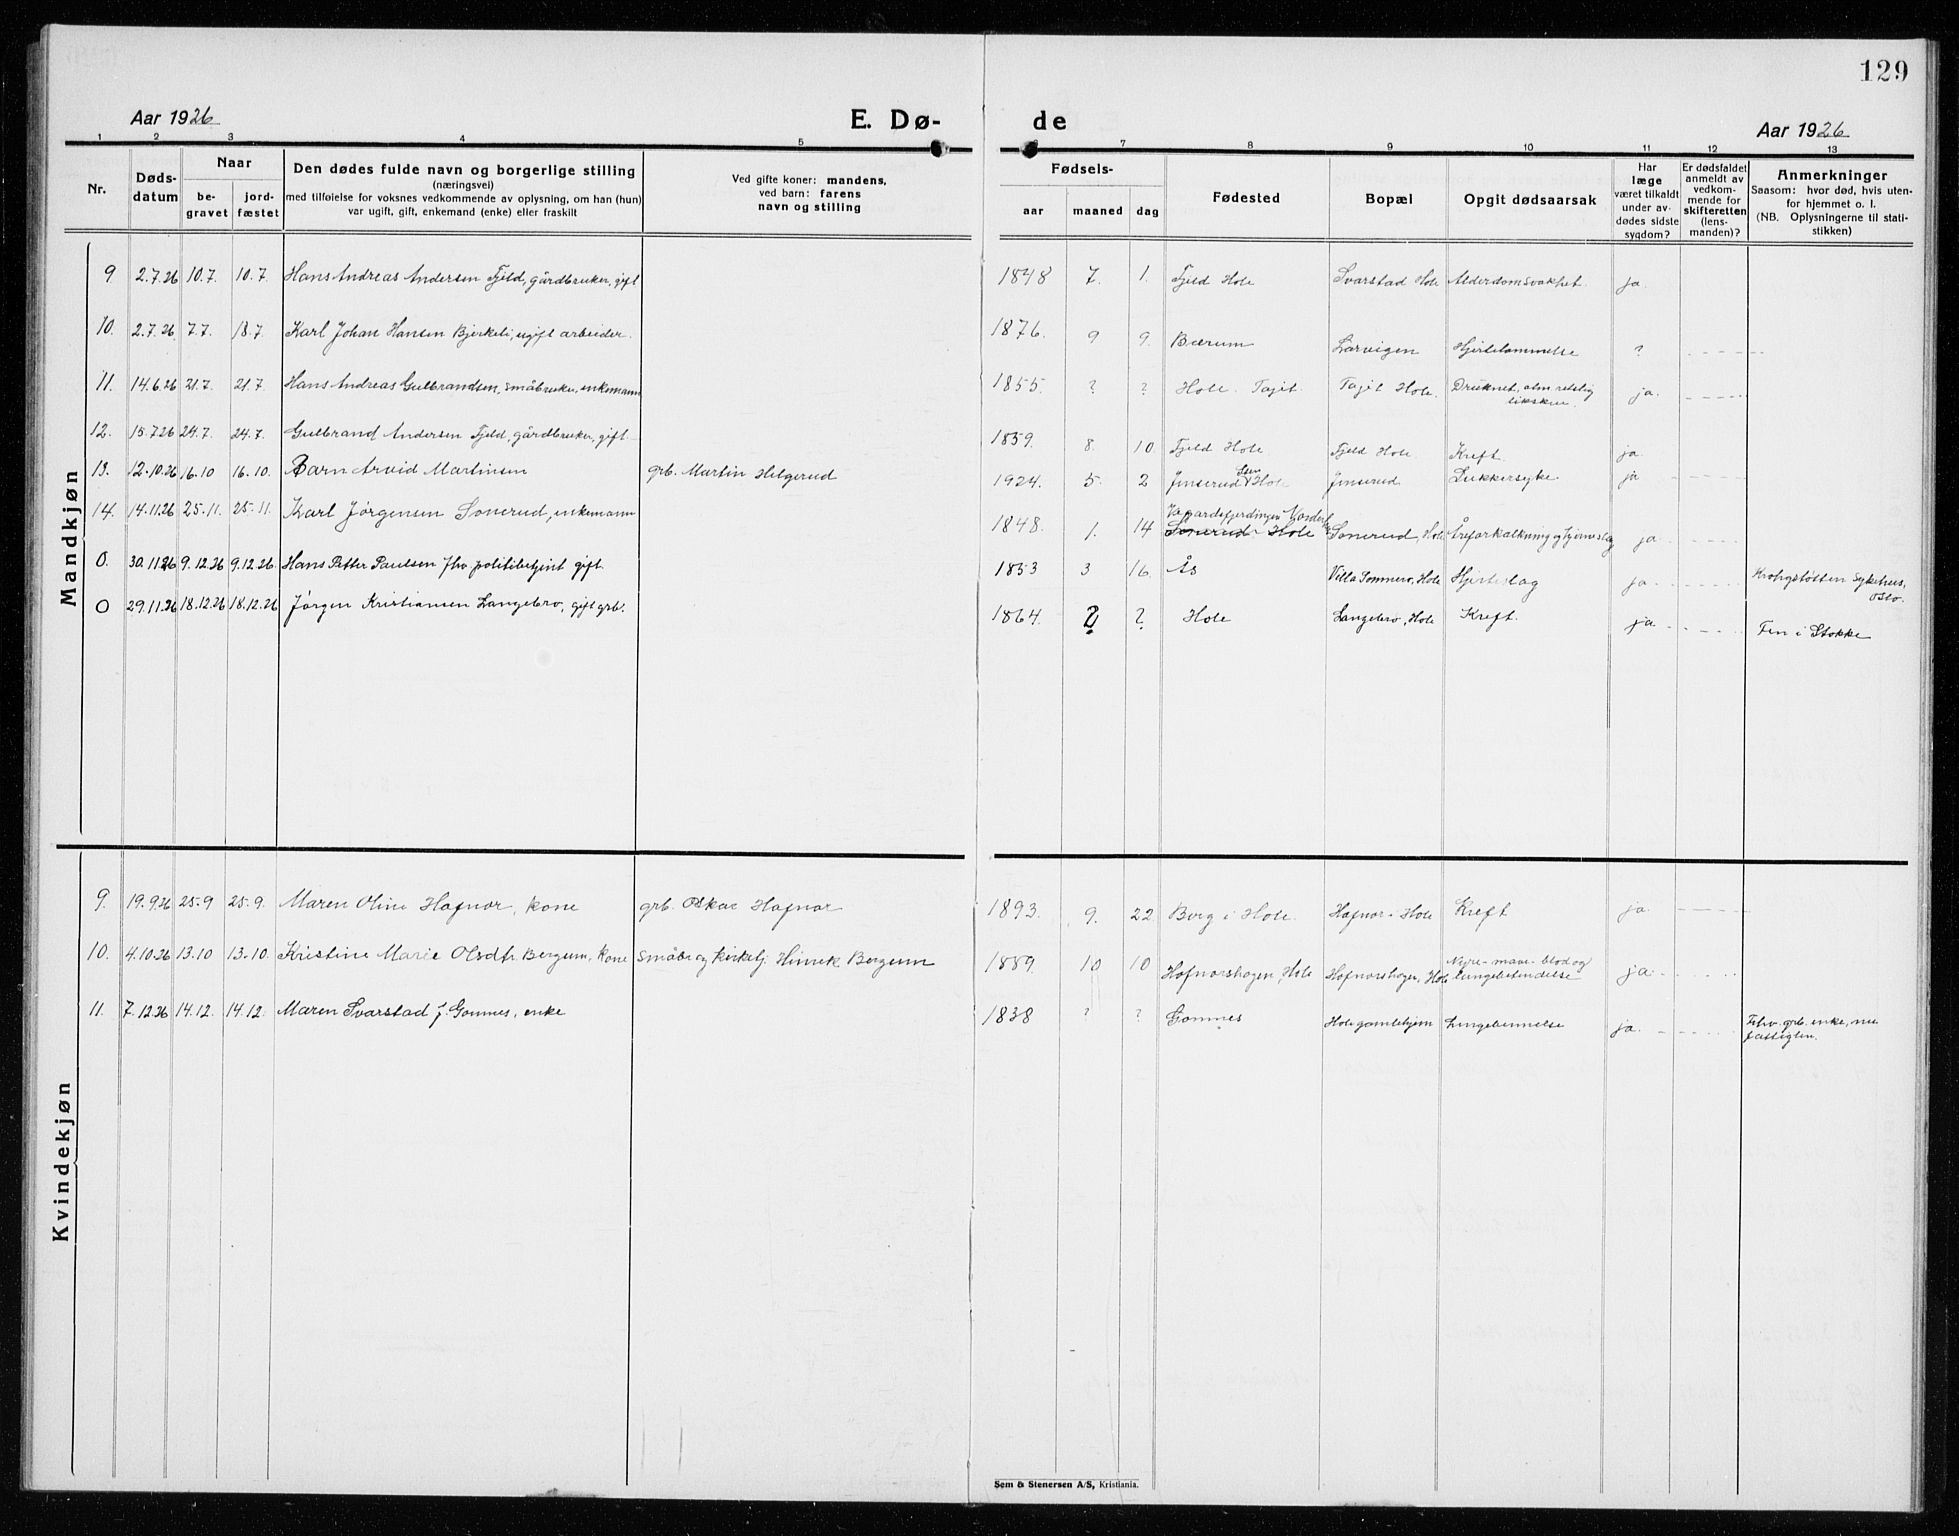 129
Aar 1926 E. Dø- de Aar 1926
1 2 3 4 5 7 8 9 10 11 12 13
Nr.
Døds-
datum
Naar
be-
gravet
jord-
fæstet
Den dødes fulde navn og borgerlige stilling
(næringsvei)
med tilføielse for voksnes vedkommende av oplysning, om han (hun)
var ugift, gift, enkemand (enke) eller fraskilt
Ved gifte koner: mandens,
ved barn: farens
navn og stilling
Fødsels-
aar maaned dag
Fødested
Bopæl
Opgit dødsaarsak
Har
læge
været tilkaldt
under av-
dødes sidste
sygdom?
Er dødsfaldet
anmeldt av
vedkom-
mende for
skifteretten
(lens-
manden)?
Anmerkninger
Saasom: hvor død, hvis uten-
for hjemmet o. l.
(NB. Oplysningerne til stati-
stikken)
Mandkjøn
9 2.7.26 10.7. 10.7. Hans Andreas Andersen Fjeld, gårdbruker, gift 1848 7. 1. Fjeld Hole Svarstad Hole Alderdomsvakhet. ja.
10. 2.7.26 7.7. 18.7. Karl Johan Hansen Bjerkeli, ugift arbeider. 1876. 9 9. Bærum Larvigen Hjertelammelse ?
11. 14.6.26 21.7. 21.7. Hans Andreas Gulbrandsen, småbruker, enkemann 1855. ? ? Hole Hole. Druknet, ja.
12. 15.7.26 24.7. 24.7. Gulbrand Andersen Fjeld, gårdbruker, gift. 1859. 8. 10 Fjeld Hole Fjeld Hole. Kreft. ja.
13. 12.10.26 16.10 16.10. Barn Arvid Martinsen grb. Martin Helgerud 1924. 5. 2 Jinserud Hole Jinserud Sukkersyke ja
14. 14.11.26 25.11. 25.11. Karl Jørgensen Sonerud, enkemann 1848. 1. 14 Sonerud Hole Sonerud, Hole Åreforkalkning og hjerneslag ja
0. 30.11.26 9.12.26 9.12.26 Hans Petter Paulsen fhv politibetjent gift. 1853 3 16. Ås Villa Sommero, Hole Hjerteslag ja Krohgstøtten Sykehus,
Oslo.
0 29.11.26 18.12.26 18.12.26 Jørgen Kristiansen Langebro, gift grb. 1864. ? ? Hole Langebro, Hole Kreft. ja Fen i Stokke
Kvindekjøn
9. 19.9.26 25.9 25.9. Maren Oline Hafnor, kone grb. Oskar Hafnor 1893. 9. 22 Borg i Hole. Hafnor i Hole Kreft ja.
10. 4.10.26 13.10 13.10. Kristine Marie Olsdtr. Bergum, kone småbr og kirketj. Hinrik Bergum 1889. 10 10 Hafnorshagen, Hole Hafnorshagen, Hole Nyre- mave- blod og
lungebetendelse ja
11. 7.12.26 14.12. 14.12. Maren Svarstad f. Gomnes, enke 1838 ? ? Gomnes Hole gamlehjem Lungebetennelse ja. Fhv. grb. enke, nu
fattiglem.
Sem & Stenersen A/S, Kristiania.